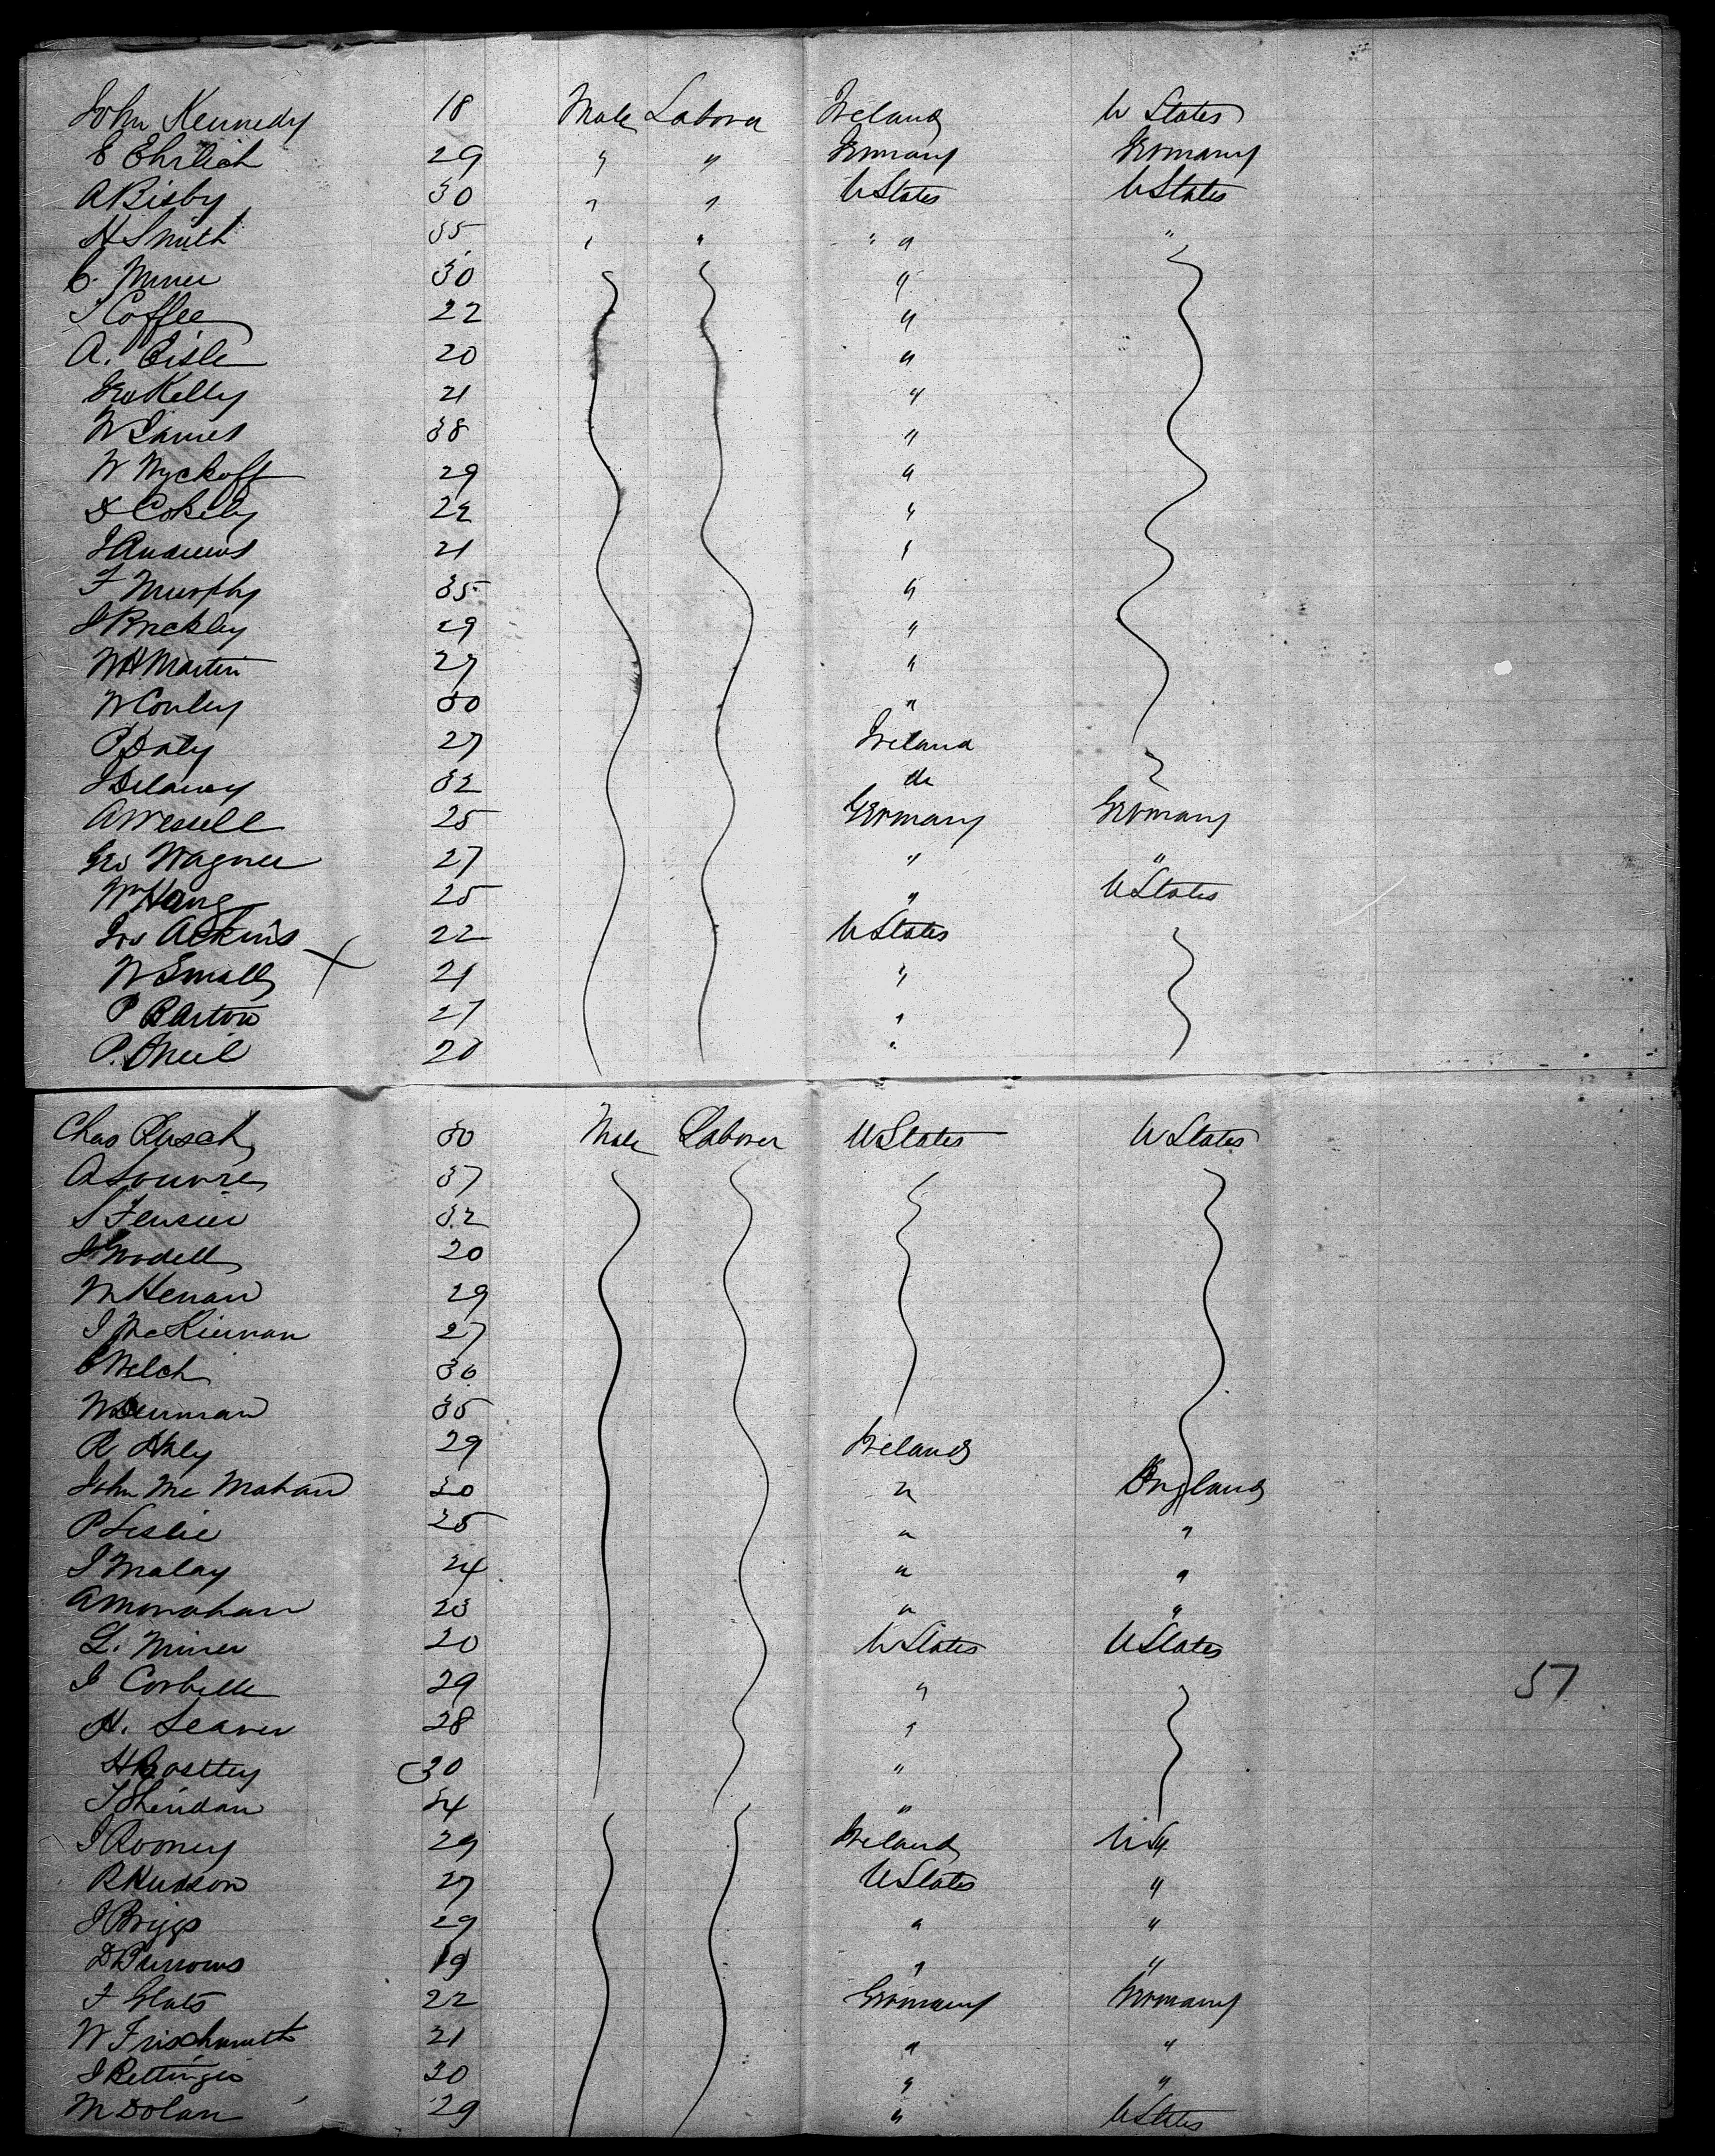 John Kennedy 18 Male Laborer Ireland U States
E Ehrlich 29 " " Germany Germany
A Bisby 30 " " U States U States
H Smith 35 " " " " "
C. Miner 30 "
J Coffee 22 "
A. Eisle 20 "
Geo Kelly 21 "
W James 38 "
W Wyckoff 29 "
22 "
J Andrews 21 "
F Murphy 35 "
J Brickley 29 "
WH Martin 27 "
W Conley 30 "
P Daly 27 Ireland
J Delaney 32 do
A Wessell 25 Germany Germany
Geo Wagner 27 " "
Wm Hang 25 " U States
Jos Ackins 22 U States
W Small 21 "
P Barton 27 "
P. ONeil 20 "
Chas Rusch 30 Male Laborer U States U States
A Louvre 37
S Fensier 32
20
W Henan 29
J McKiernan 27
C Welch 30
W Denman 35
R Haly 29 Ireland
John Mc Mahan 30 " England
P Leslie 25 " "
J Malay 24 " "
A Monahan 23 " "
L. Miner 20 U States U States
J Corbelle 29 "
H. Seaver 28 "
H Bosttey 30 "
T Sheridan 34 "
J Rooney 29 Ireland U St
R Hudson 27 U States "
J Briggs 29 " "
D Burrows 19 " "
F Glats 22 Germany Germany
W Frischmuth 21 " "
J Rettinger 20 " "
M Dolan 29 " U States
57